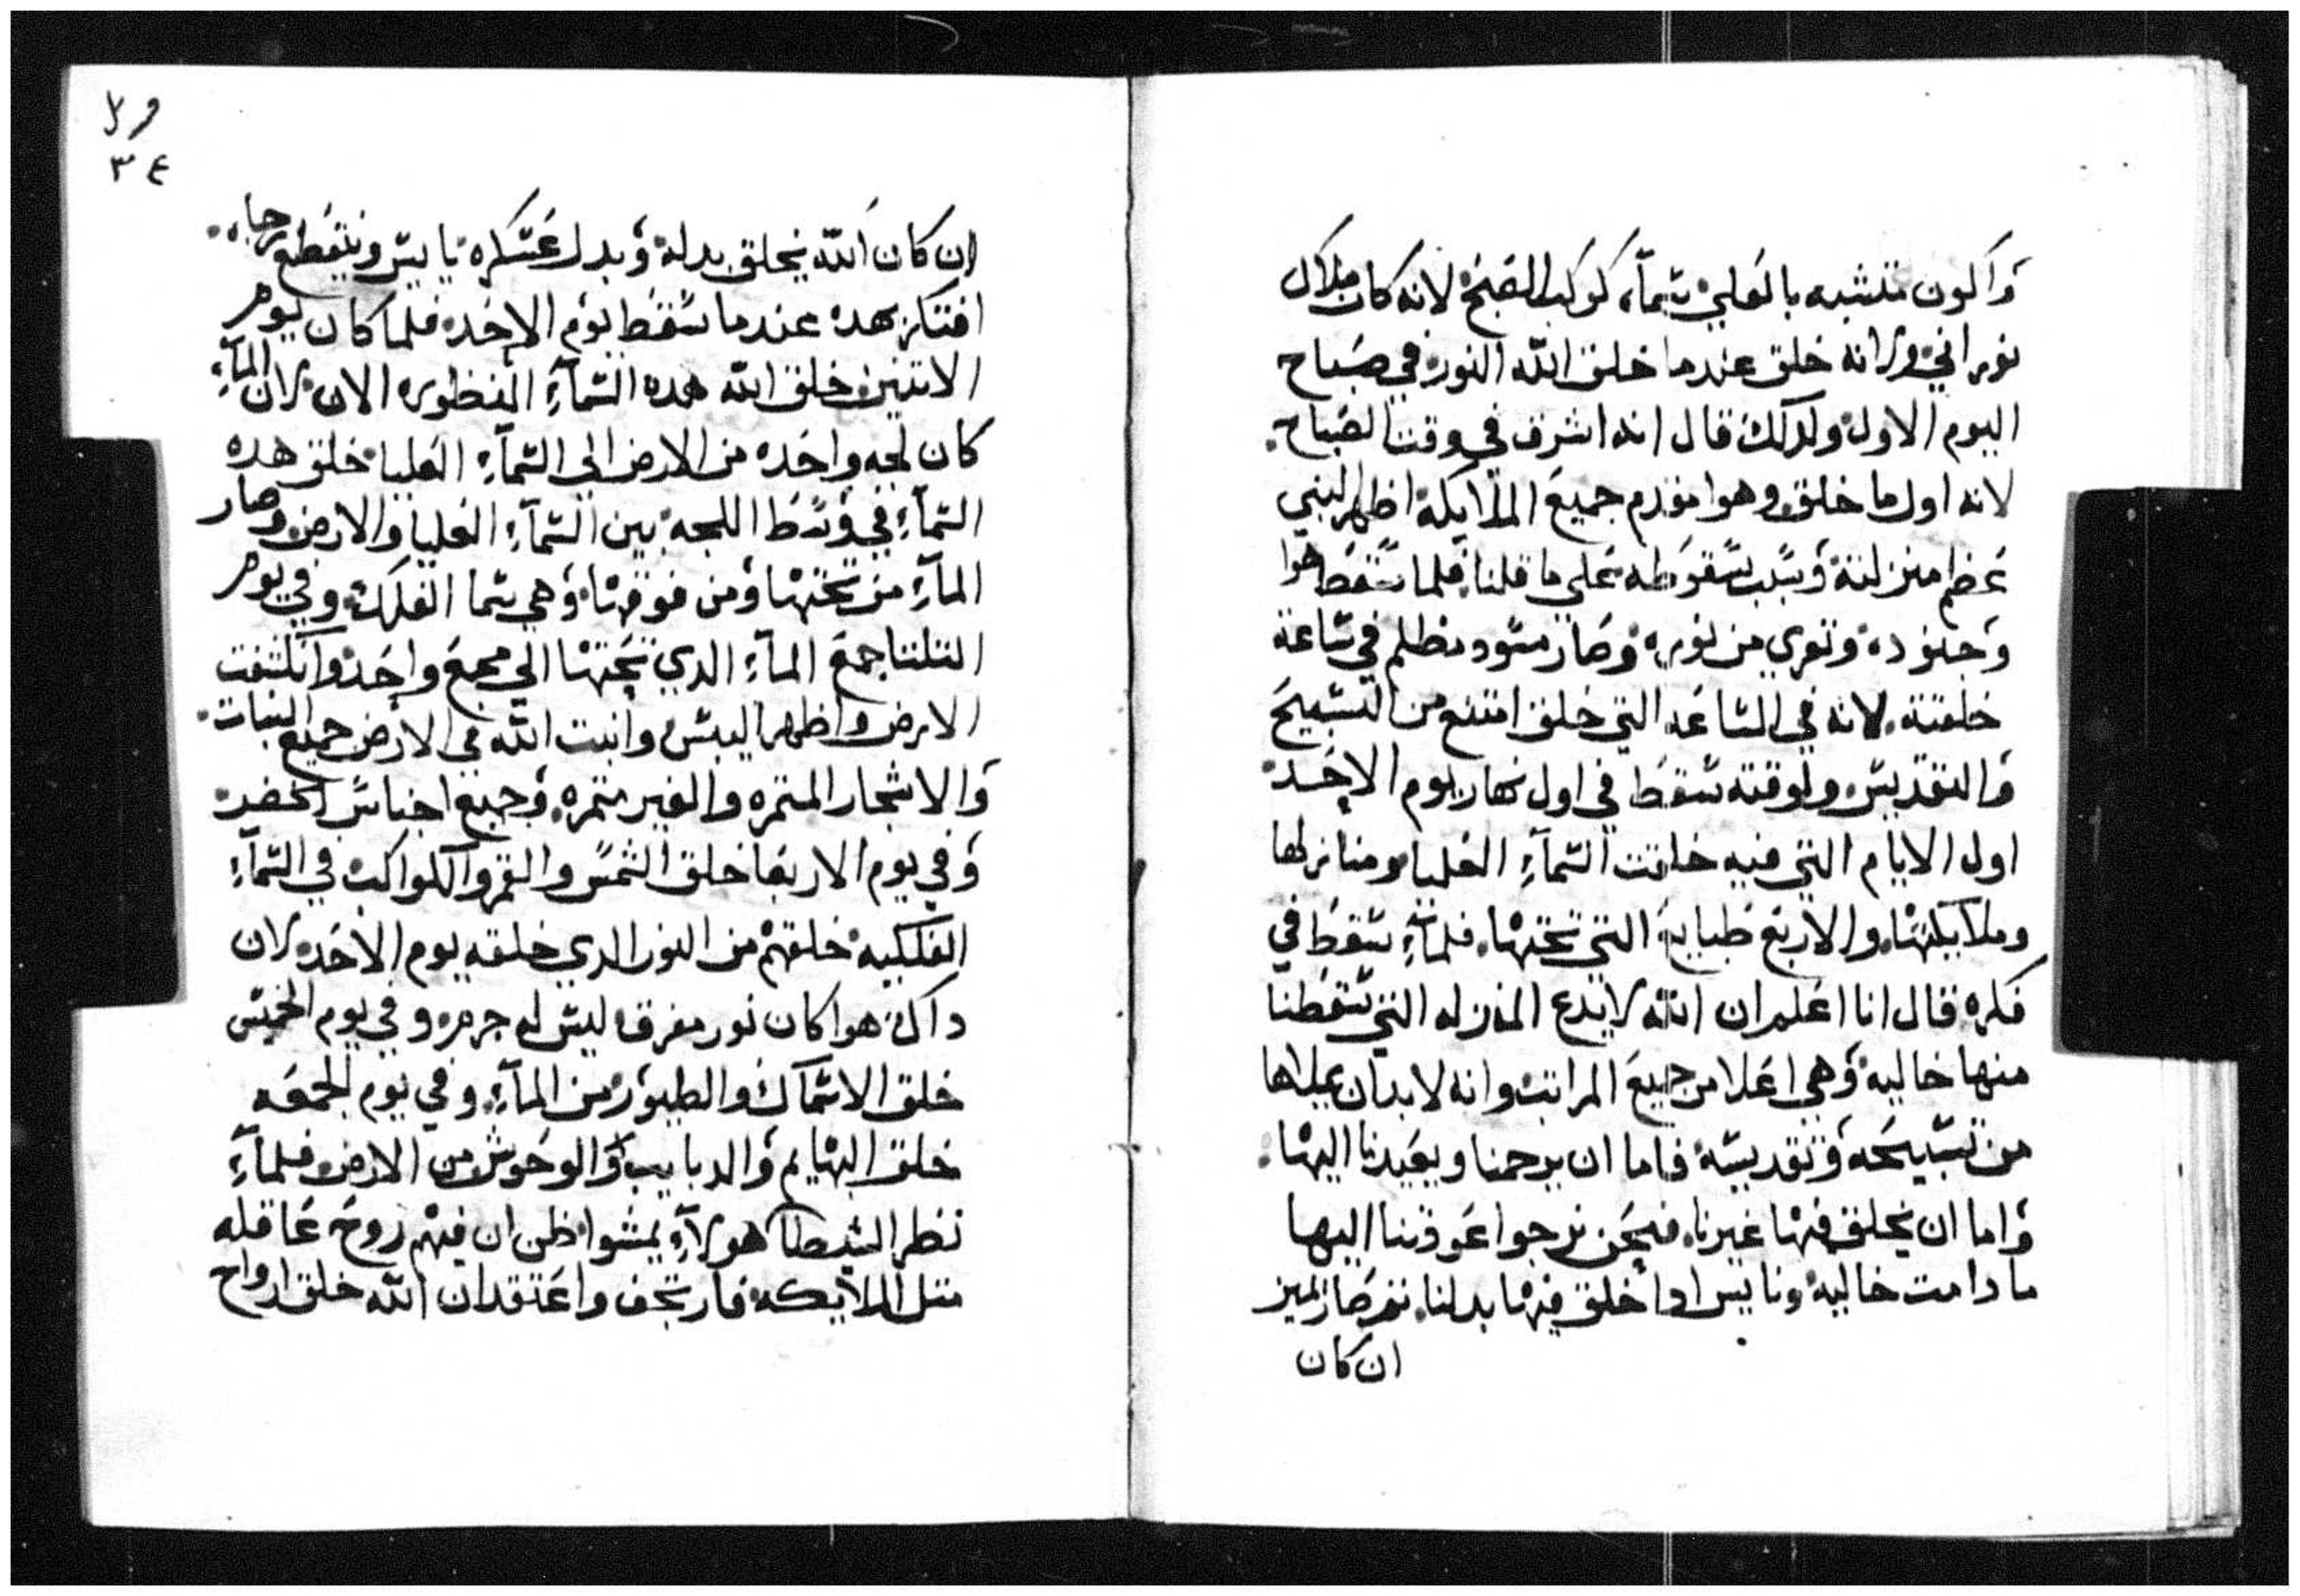 واكون متشبه بالعلي سماه كوكب الصبح لانه كان ملاك
نوراني ولانه خلق عندما خلق الله النور في صباح
اليوم الاول ولدلك قال انه اشرف في وقت الصباح
لانه اول ما خلق وهوا مقدم جميع الملايكة اظهر لبني
عظم منزلتة وسبب سقوطه علي ما قلنا فلما سقط هوا
وجنوده وتعري من نوره وصار مسود مظلم في ساعة
خلقتة لانه في الساعه التي خلق امتنع من التسبيح
والتقديس ولوقته سقط في اول نهار يوم الاحد
اول الايام التي فيه خلقت السمآء العليا ومنازلها
وملايكتها والاربع طبايع التي تحتها فلمآء سقط في
فكره قال انا اعلم ان الله لا يدع المنزله التي سقطنا
منها خاليه وهي اعلا من جميع المراتب وانه لابد ان يملاها
من تسبيحه وتقديسه فاما ان يرحمنا ويعيدنا اليها
واما ان يخلق فيها غيرنا فنحن نرجوا عودتنا اليها
ما دامت خاليه ونايس ادا خلق فيها بدلنا تم صار يميز
ان كان
ورل
٣٤
ان كان الله يخلق بدله وبدل عسكره يايس وينقطع رجاه
افتكر بهده عندما سقط يوم الاحد فلما كان يوم
الاتنين خلق الله هده السمآء المنظوره الان لان المآء
كان لجه واحده من الارض الي السمآء العليا خلق هده
السمآء في وسط اللجه بين السمآء العليا والارض وصار
المآء من تحتها ومن فوقها وهي سما الفلك وفي يوم
التلتا جمع المآء الدي تحتها الي مجمع واحد وانكشفت
الارض واظهر اليبس وانبت الله في الارض جميع النبات
والاشجار المتمره والغير متمره وجميع اجناس الخضر
وفي يوم الاربعا خلق الشمس والقمر والكواكب في السمآء
الفلكيه خلقهم من النور الدي خلقه يوم الاحد لان
داك هوا كان نور مفرق ليس له جرم وفي يوم الخميس
خلق الاسماك والطيور من المآء وفي يوم الجمعه
خلق البهايم والدبابيب والوحوش من الارض فلمآء
نظر الشيطان هولآء يمشوا ظن ان فيهم روح عاقله
متل الملايكه فارتجف واعتقد ان الله خلق ارواح